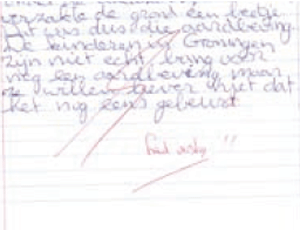 verzakte de grond een beetje.
Dat was dus die aardbeving.
De kinderen in Groningen
zijn niet echt bang voor
nog een aardbeving maar
ze willen liever niet dat
het nog eens gebeurt.
!!